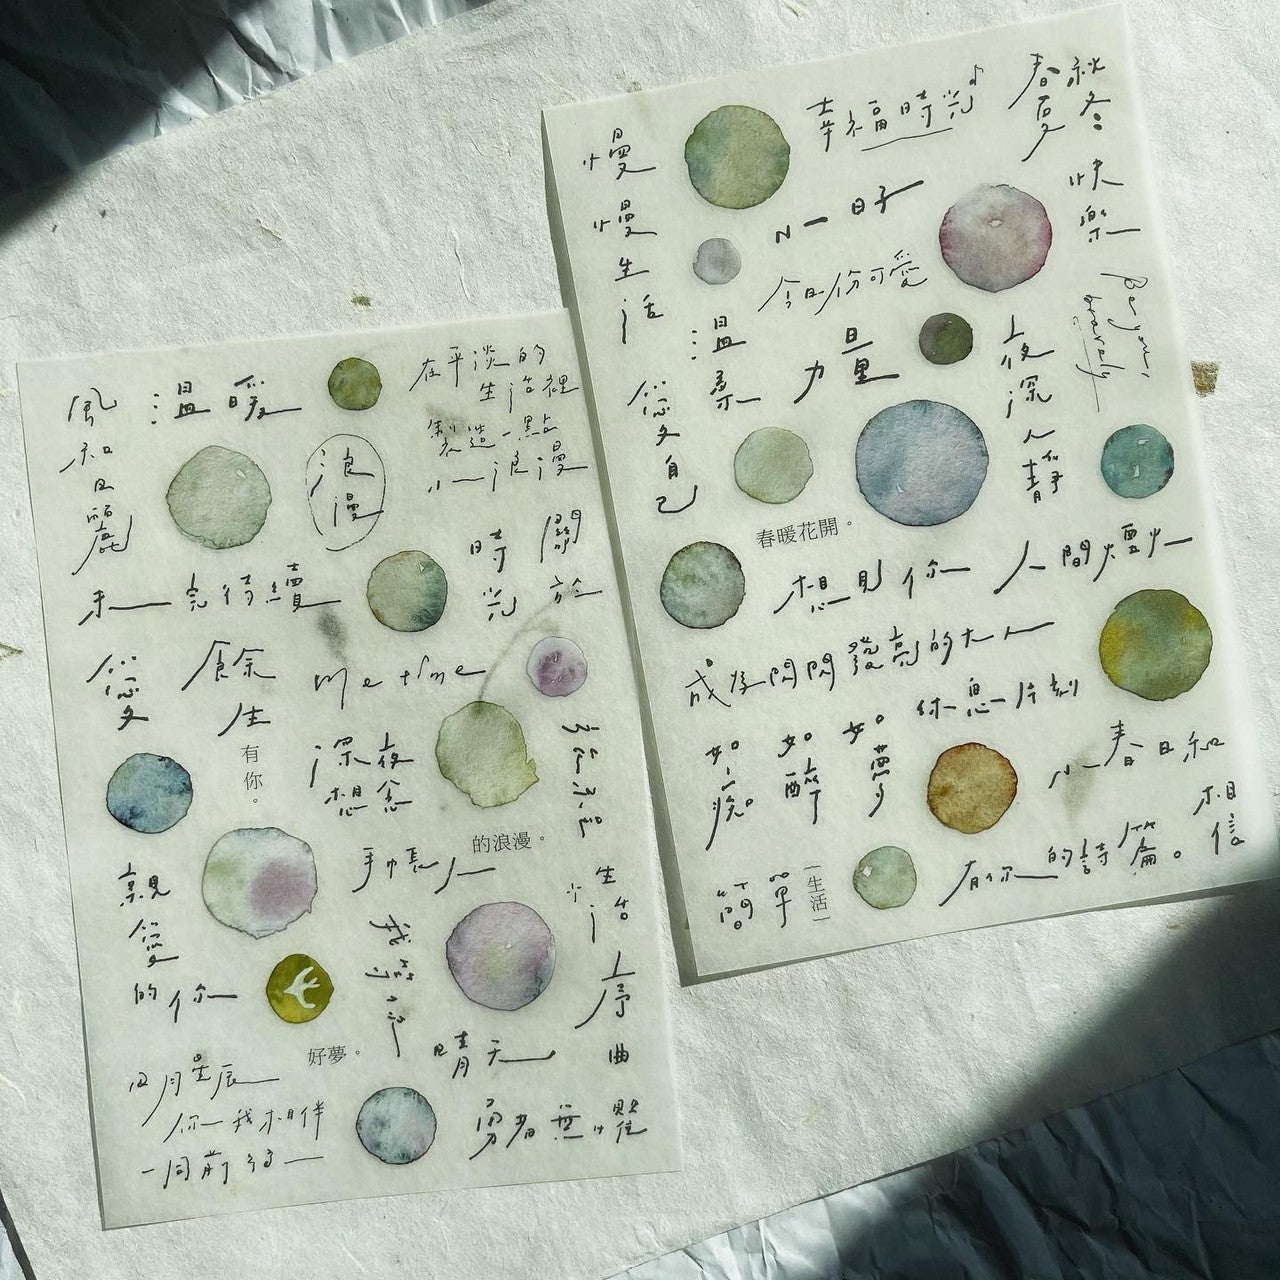 風和日麗
溫暖
在平淡的
生活裡
製造一點
小浪漫
浪漫
未完待續
時光
關於
戀愛
餘生
me time
有你。
深夜
想念
的浪漫。
手帳人
親愛的你
生活序曲
好夢。
晴天
日月星辰
你我相伴
一同前行
勇者無懼
慢慢生活
幸福時光
春夏秋冬
快樂
小日子
今日份可愛
Be your
bravely
溫柔
力量
戀愛自己
夜深人靜
春暖花開。
想見你
人間煙火
成為閃閃發亮的大人
休息一片刻
如痴
如醉
如夢
小春日和
相信
簡單
生活
有你的詩篇。